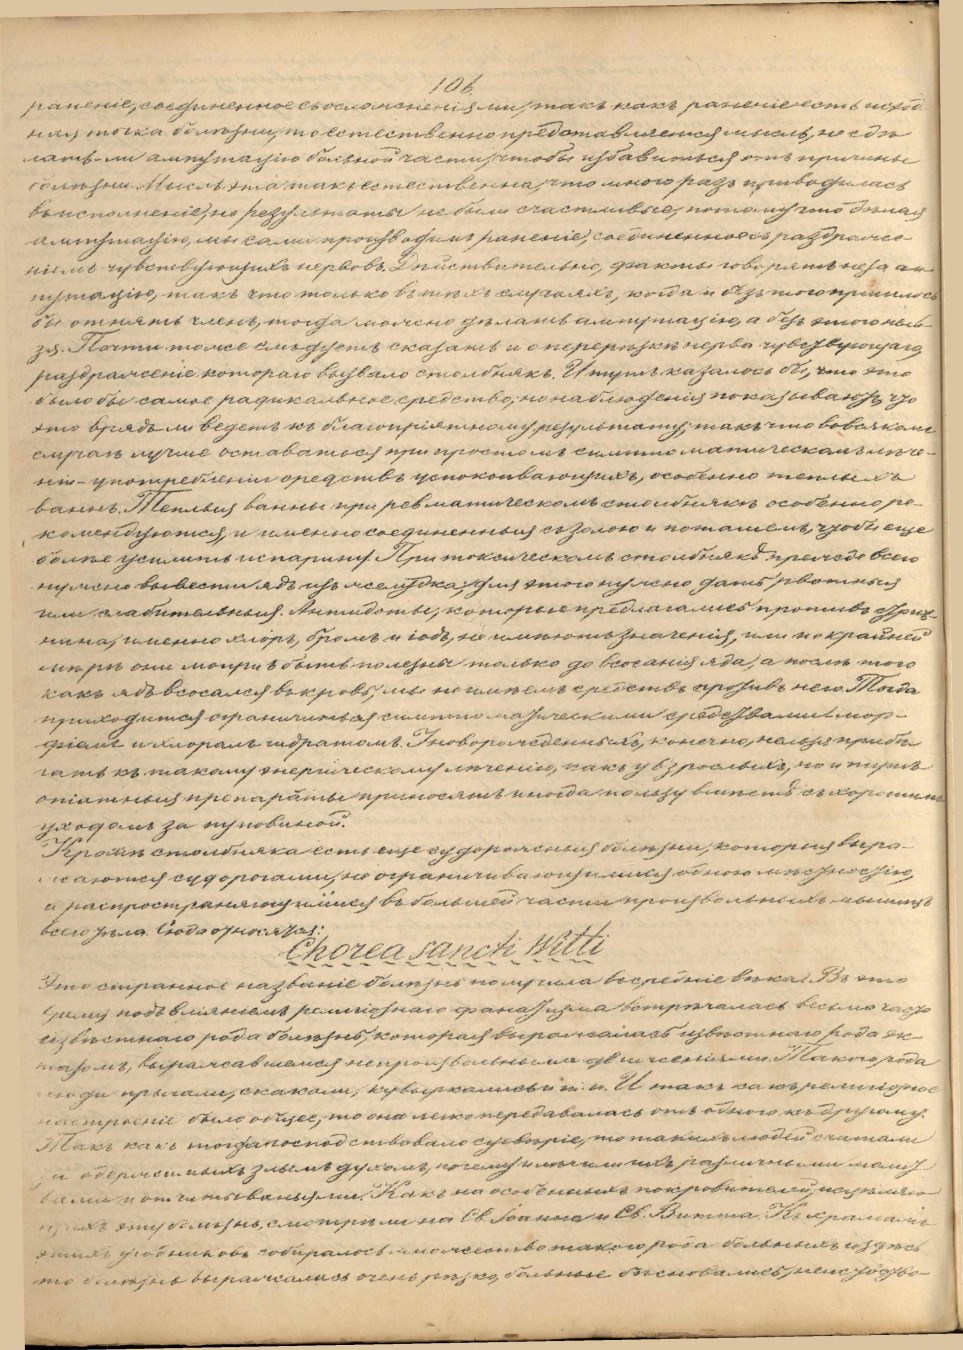 106.
раненіе, соединенное съ осложненіями, такъ какъ раненіе есть исход
ная точка болѣзни, то естественно представляется мысль, не сдѣ
лать-ли ампутацію больной части, чтобы избавиться отъ причины
болѣзни. Мысль эта такъ естественна, что много разъ приводилась
въ исполненіе, но результаты не были счастливые, потому что дѣлая
ампутацію, мы сами производимъ раненіе, соединенное съ раздраже-
ніемъ чувствующихъ нервовъ. Дѣйствительно, факты говорятъ не за ам
путацію, такъ что только въ тѣхъ случаяхъ, когда и безъ того пришлось
бы отнять членъ, тогда можно дѣлать ампутацію, а безъ этого нель-
зя. Почти тоже слѣдуетъ сказать и о перерѣзкѣ нерва чувствующаго
раздраженіе котораго вызвало столбнякъ. И тутъ казалось бы, что это
было бы самое радикальное средство, но наблюденія показываютъ, что
это врядъ ли ведетъ къ благопріятному результату, такъ что во всякомъ
случаѣ лучше оставаться при простомъ симптоматическомъ лѣче-
ніи - употребленіи средствъ успокоивающихъ, особенно теплыхъ
ваннъ. Теплыя ванны при ревматическомъ столбнякѣ особенно ре-
комендуются и именно соединенныя съ золою и поташемъ, чтобы еще
болѣе усилить испарину. При токсическомъ столбнякѣ прежде всего
нужно вывести ядъ изъ желудка; для этого нужно дать рвотныя
или слабительныя. Антидоты, которые предлагались противъ стрих-
нина, именно хлоръ, бромъ и іодъ, не имѣютъ значенія, или по крайней
мѣрѣ они могутъ быть полезны только до всосанія яда, а послѣ того
какъ ядъ всосался въ кровь, мы не имѣемъ средствъ противъ него. Тогда
приходится ограничиться симптоматическими средствами: мор-
фіемъ и хлоралъ гидратомъ. У новорожденныхъ, конечно, нельзя прибѣ
гать къ такому энергическому лѣченію, какъ у взрослыхъ, но и тутъ
опіатныя препараты приносятъ иногда пользу вмѣстѣ съ хорошимъ
уходомъ за пуповиной.
Кромѣ столбняка есть еще судорожныя болѣзни, которыя выра-
жаются судорогами, не ограничивающимися одною мѣстностію,
а распространяющимися въ большей части произвольныхъ мышцъ
всего тѣла. Сюда относятся:
Chorea sancti Witti
Это странное названіе болѣзнь получила въ средніе вѣка. Въ это
время подъ вліяніемъ религіознаго фанатизма встрѣчалась весьма часто
извѣстнаго рода болѣзнь, которая выражалась извѣстнаго рода эк-
тазомъ, выражавшемся непроизвольными движеніями. Такого рода
люди прыгали, скакали, кувыркались и т. п. И такъ какъ религіозное
настроеніе было общее, то она легко передавалась отъ одного къ другому.
Такъ какъ тогда господствовало суевѣріе, то такихъ людей считали
за одержимыхъ злымъ духомъ, почему и лѣчили ихъ различными молит
вами и отчитываньями. Какъ на особенныхъ покровителей, исцѣляю
щихъ эту болѣзнь, смотрѣли на Св. Іоанна и Св. Витта. Къ храмамъ
этихъ угодниковъ собиралось множество такого рода больныхъ и здѣсь
то болѣзнь выражалась очень рѣзко, больные бѣсновались, неистовство-